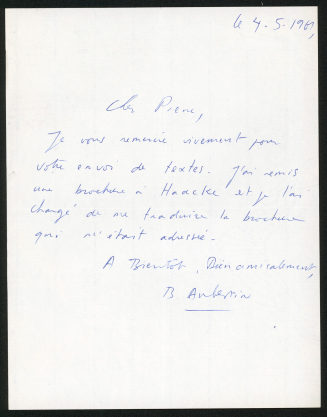 le 4-5-1961,
Cher Pierre,
Je vous remercie vivement pour
votre envoi de textes. J'ai remis
une brochure à Haacke et je l'ai
chargé de me traduire la brochure
qui m'était adressée.
A Bientôt, Bien amicalement,
B Aubertin